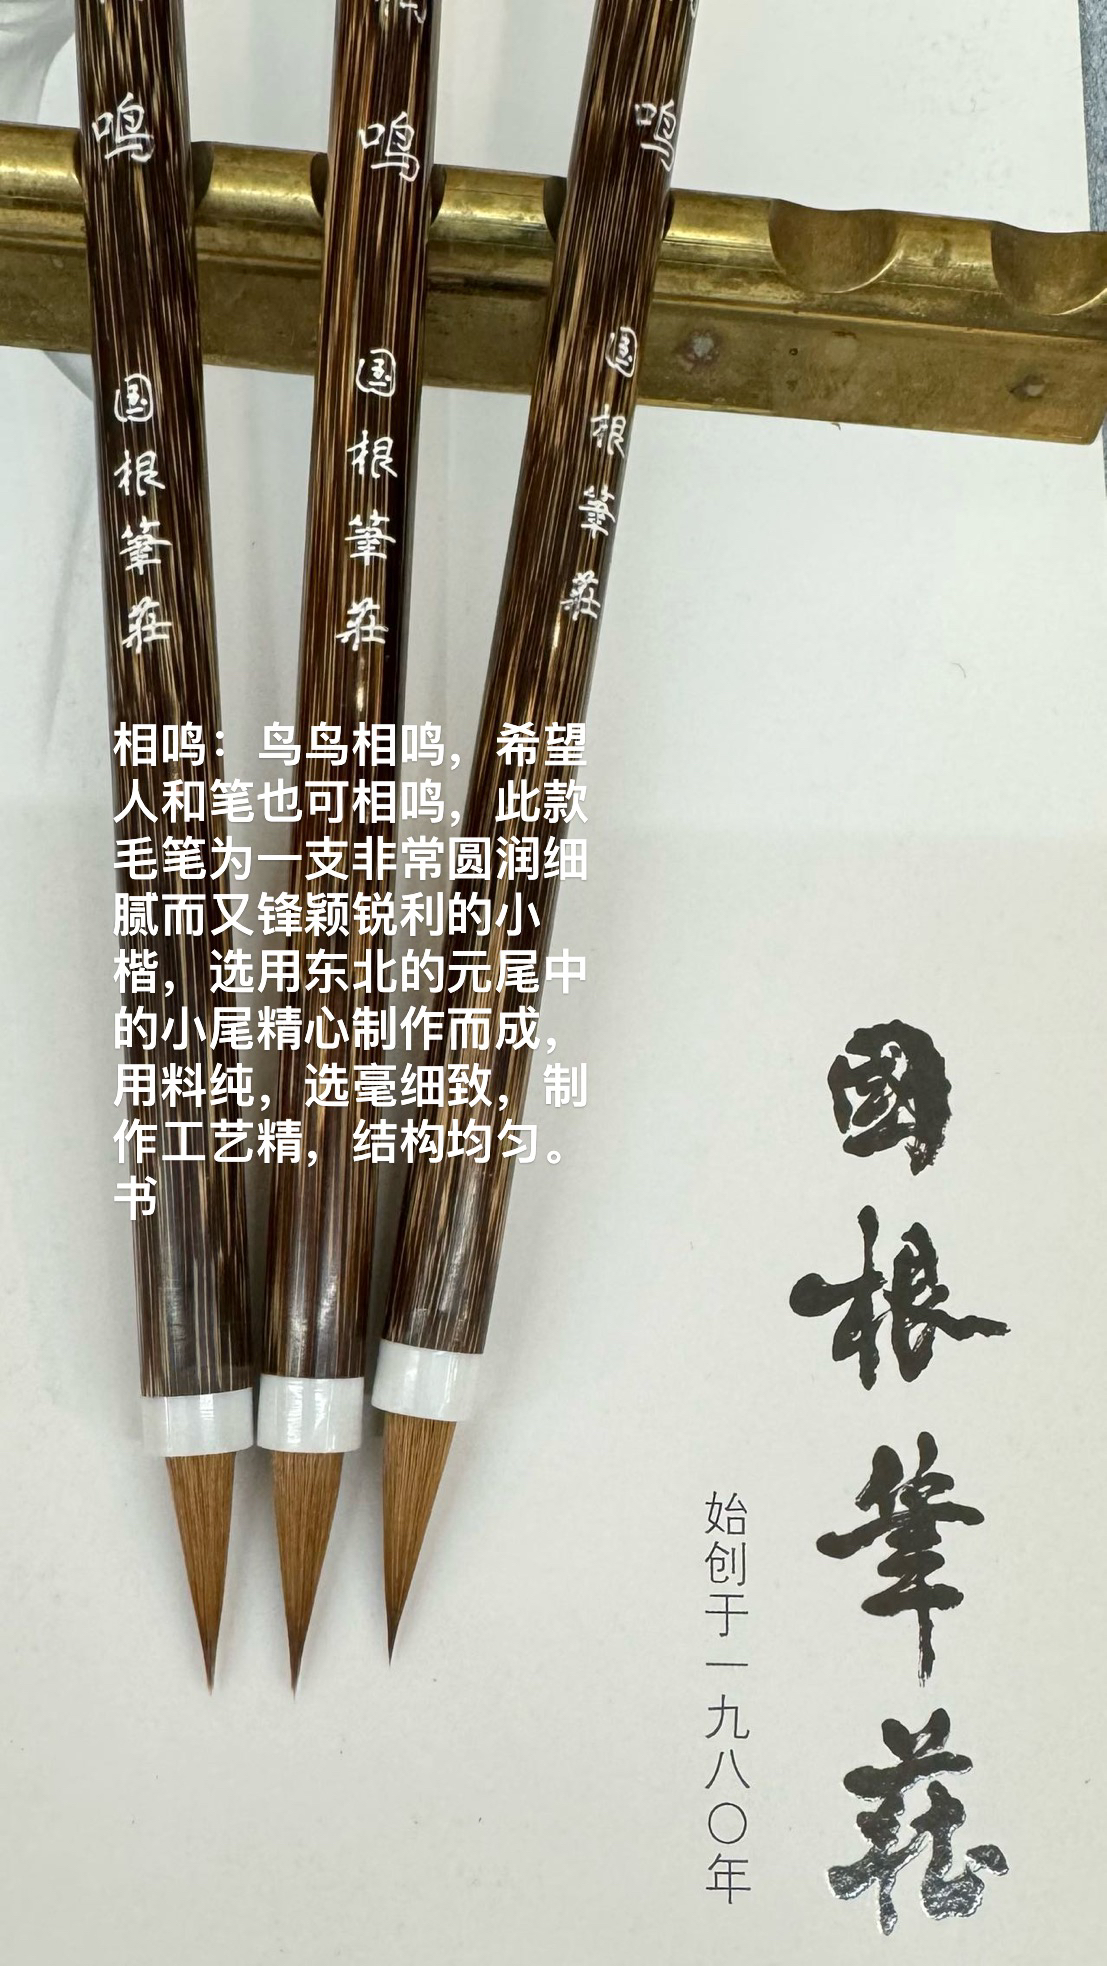 鸣
国根筆莊
鸣
国根筆莊
鸣
国根筆莊
相鸣：鸟鸟相鸣，希望
人和笔也可相鸣，此款
毛笔为一支非常圆润细
腻而又锋颖锐利的小
楷，选用东北的元尾中
的小尾精心制作而成，
用料纯，选毫细致，制
作工艺精，结构均匀。
书
國根筆莊
始创于一九八〇年